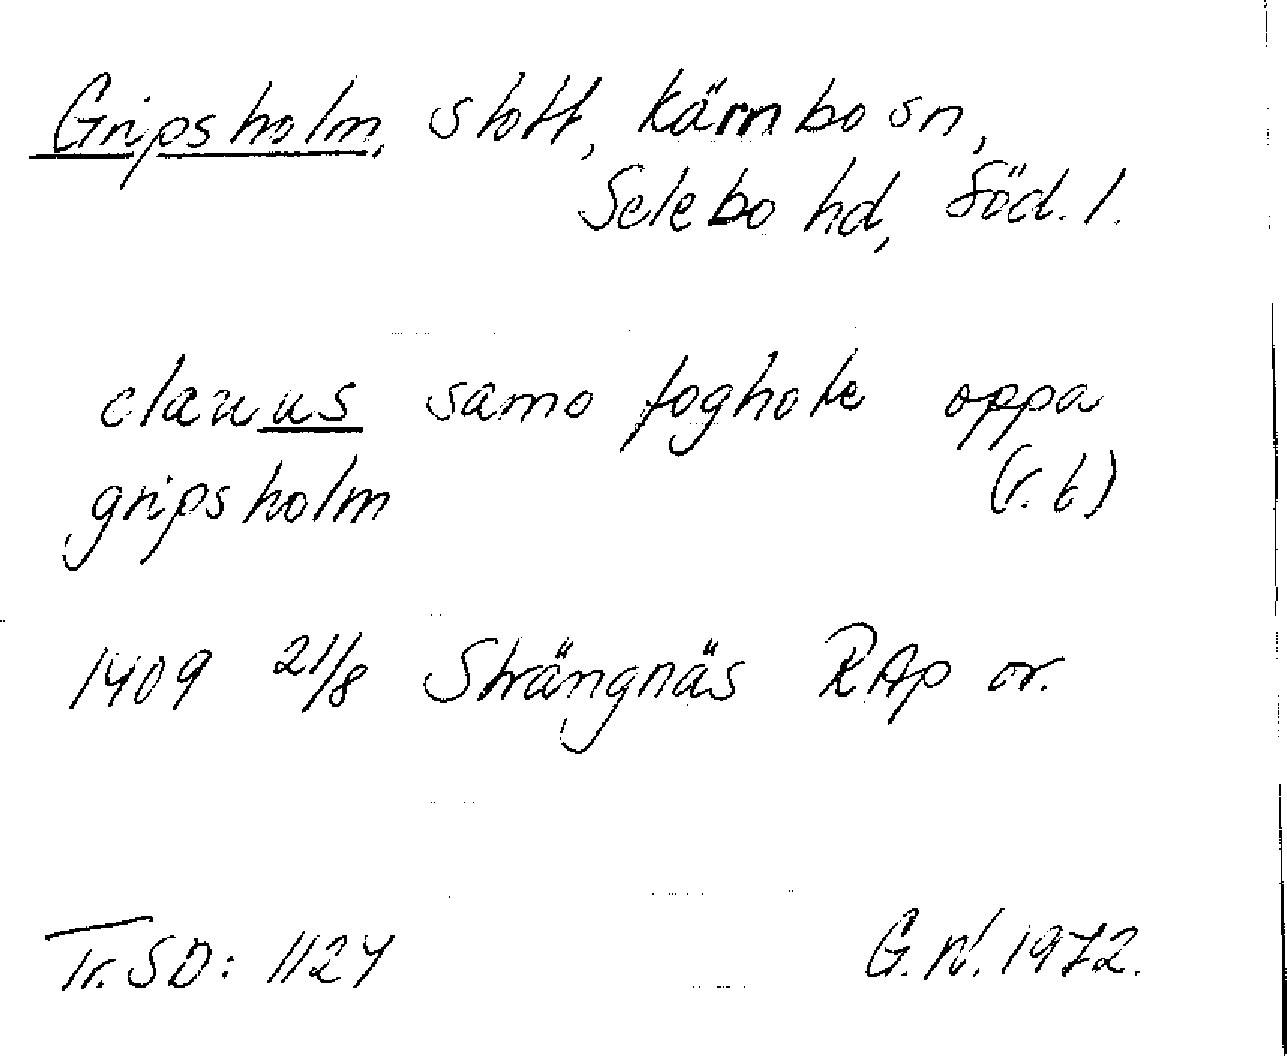 Gripsholm, slott, Kärnbo sn,
Selebo hd, Söd. l.
clauus samo foghote oppa
gripsholm (r. b)
1409 21/8 Strängnäs RAp or.
Tr. SD: 1124 G.N. 1972.